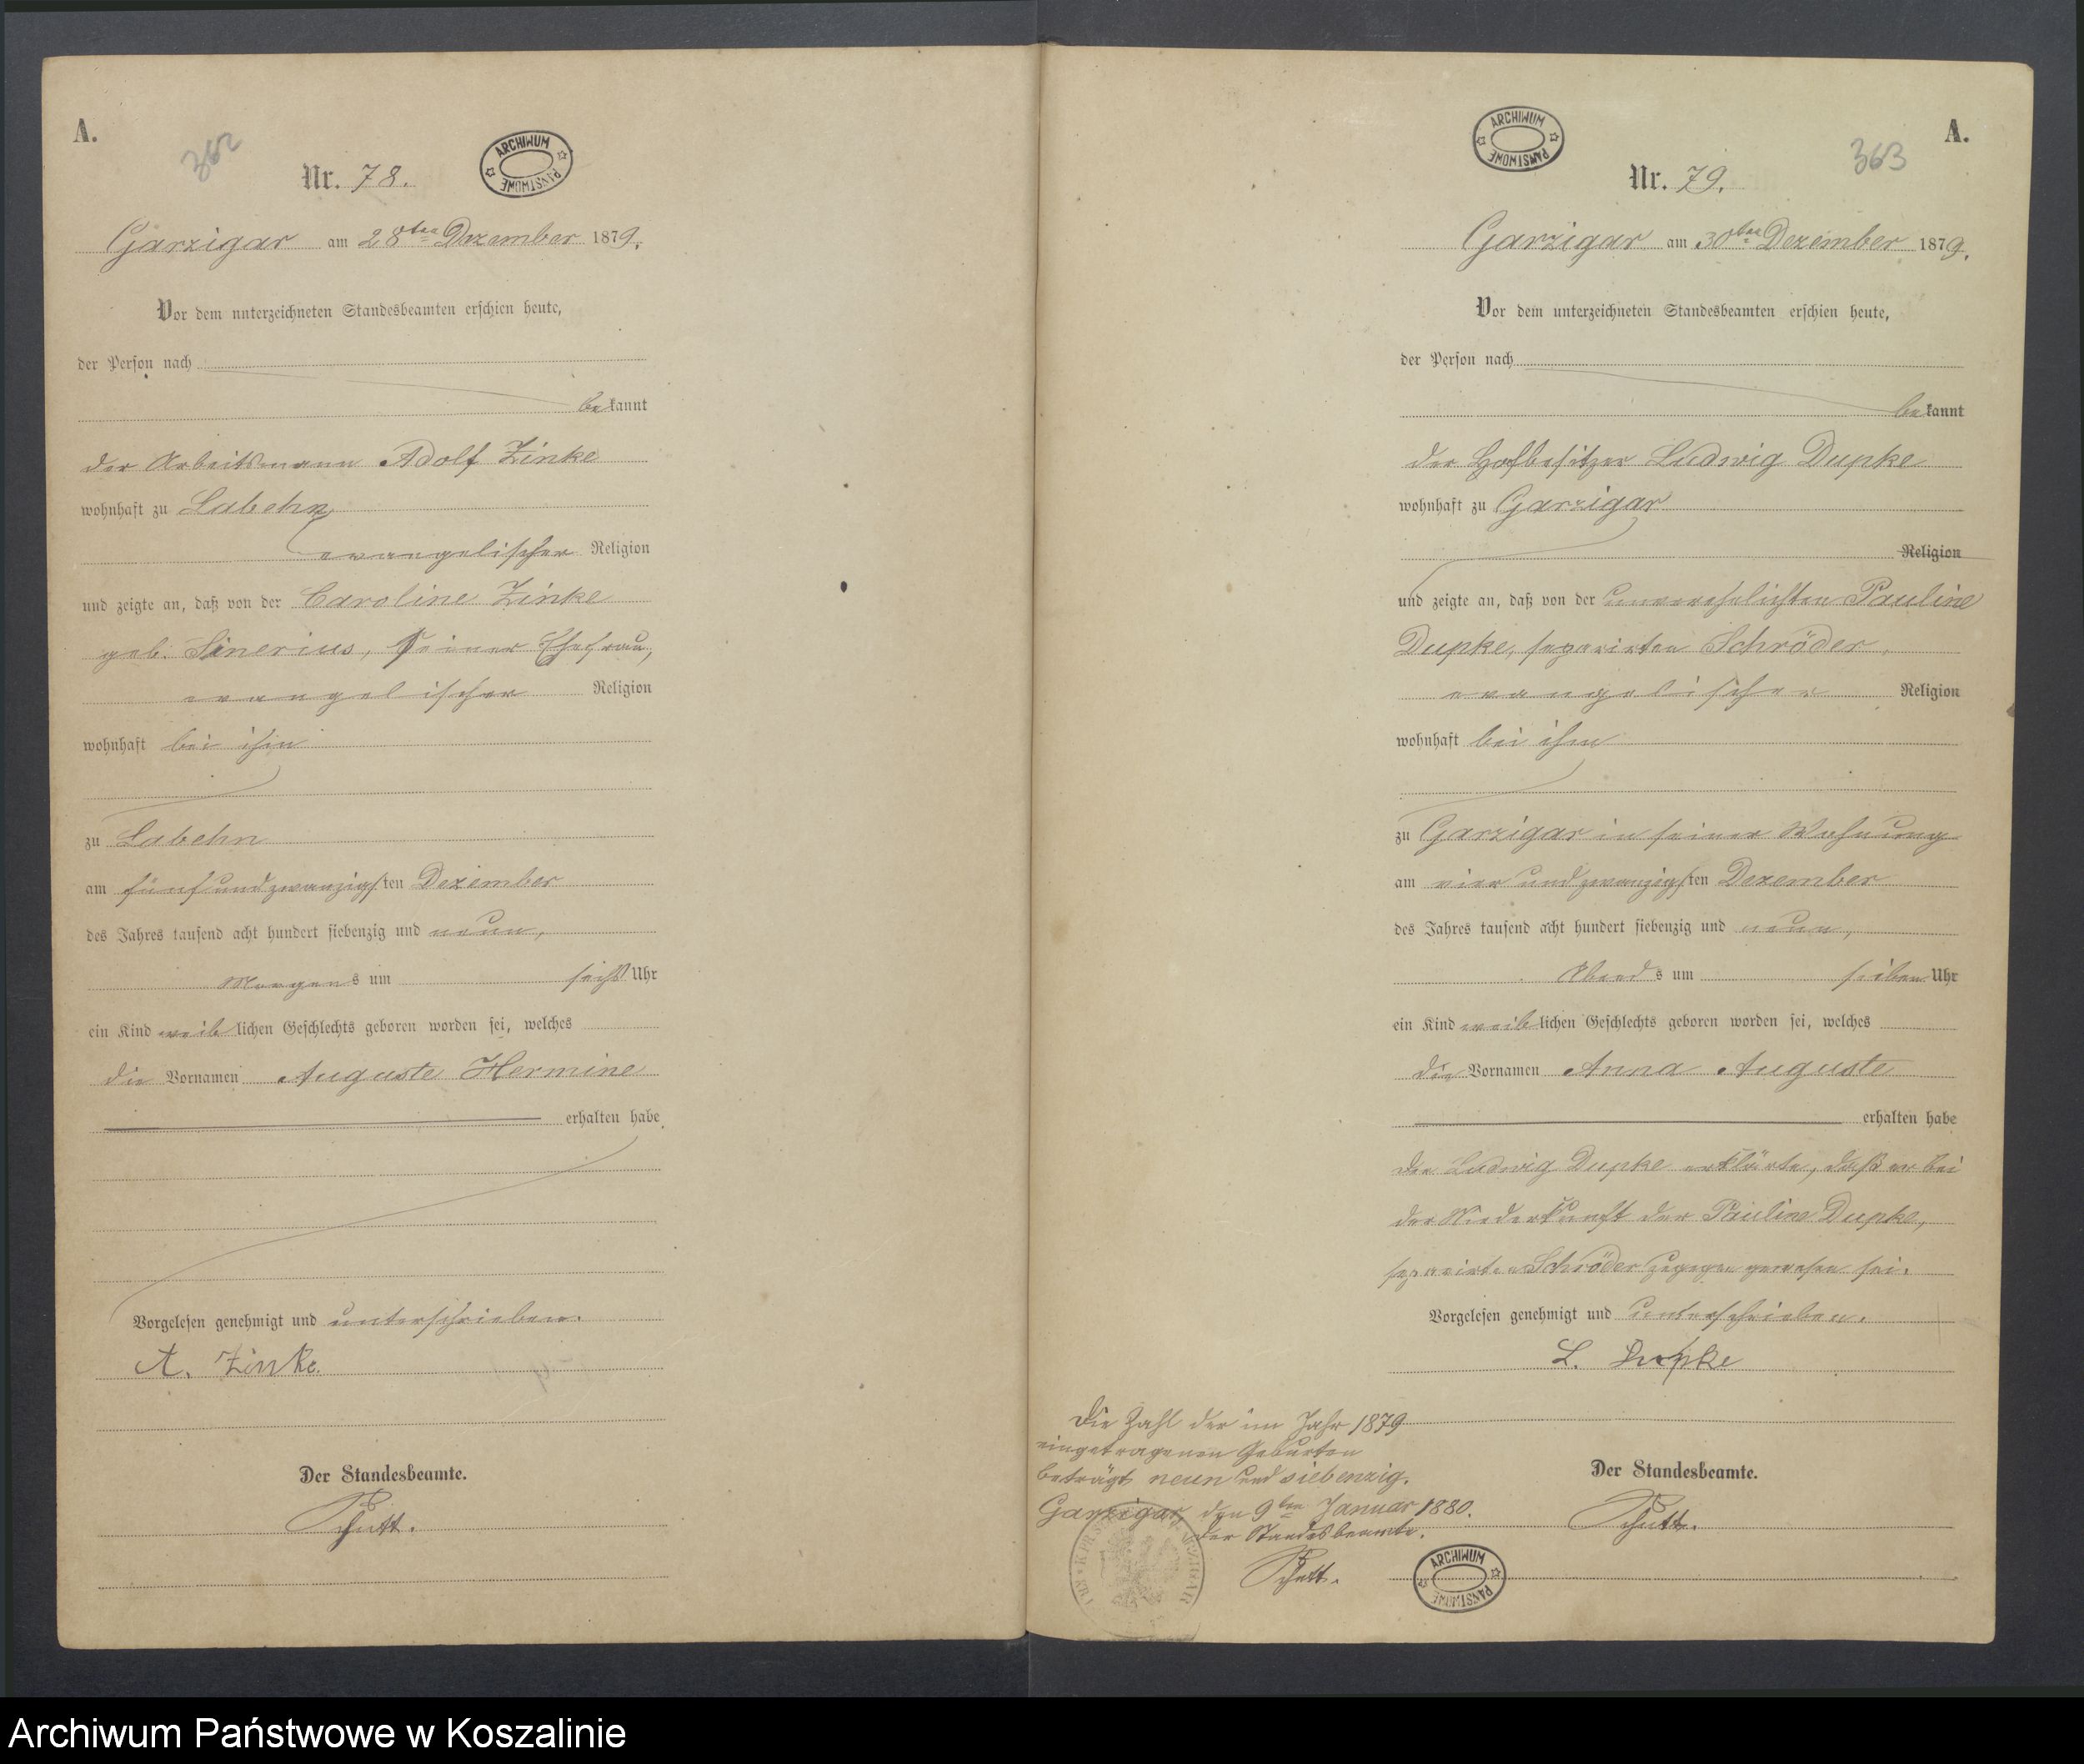 A.
362
Nr. 78.
ARCHIWUM PAŃSTWOWE
Garzigar am 28ten Dezember 1879.
Vor dem unterzeichneten Standesbeamten erschien heute,
der Person nach
bekannt
der Arbeitsmann Adolf Zinke
wohnhaft zu Labehn
evangelischer Religion
und zeigte an, daß von der Caroline Zinke
geb. Sinerius, seiner Ehefrau,
evangelischer Religion
wohnhaft bei ihm
zu Labehn
am fünf und zwanzigsten Dezember
des Jahres tausend acht hundert siebenzig und neun,
Morgens um sechs Uhr
ein Kind weiblichen Geschlechts geboren worden sei, welches
die Vornamen Auguste Hermine
erhalten habe
Vorgelesen genehmigt und unterschrieben.
A. Zinke.
Der Standesbeamte.
Schutt.
A.
363
ARCHIWUM PAŃSTWOWE
Nr. 79.
Garzigar am 30ten Dezember 1879.
Vor dem unterzeichneten Standesbeamten erschien heute,
der Person nach
bekannt
der Hofbesitzer Ludwig Dupke
wohnhaft zu Garzigar
Religion
und zeigte an, daß von der unverehelichten Pauline
Dupke, separirten Schröder,
evangelischer Religion
wohnhaft bei ihm
zu Garzigar in seiner Wohnung
am vier und zwanzigsten Dezember
des Jahres tausend acht hundert siebenzig und neun,
Abends um sieben Uhr
ein Kind weiblichen Geschlechts geboren worden sei, welches
die Vornamen Anna Auguste
erhalten habe
Der Ludwig Dupke erklärte, daß er bei
der Niederkunft der Pauline Dupke,
separirten Schröder zugegen gewesen sei.
Vorgelesen genehmigt und unterschrieben.
L. Dupke
Der Standesbeamte.
Schutt.
Die Zahl der im Jahr 1879
eingetragenen Geburten
beträgt neun und siebenzig.
Garzigar, den 9ten Januar 1880.
Der Standesbeamte.
Schutt.
ARCHIWUM PAŃSTWOWE
Archiwum Państwowe w Koszalinie